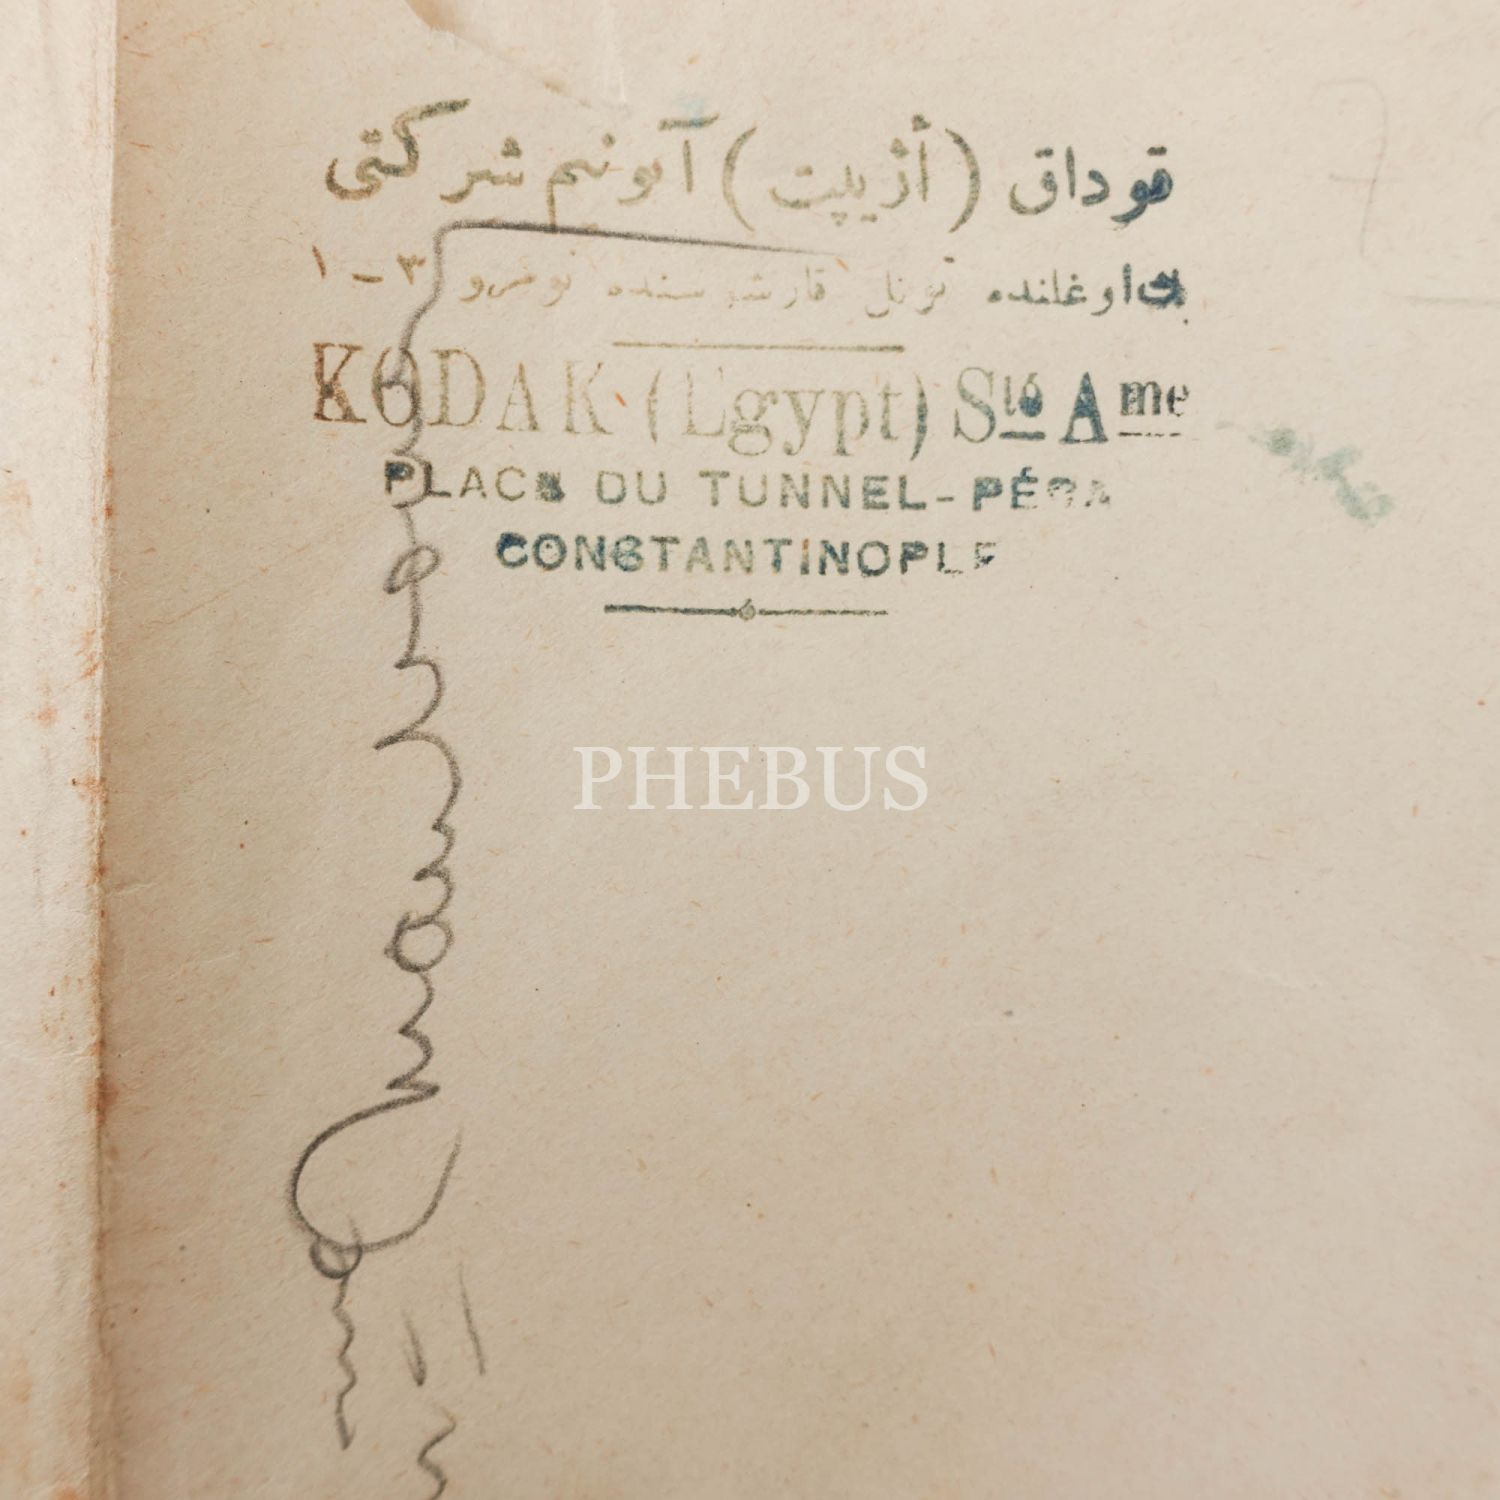 قوداق (أژيپت) آنونيم شركتى
بك اوغلنده تونل قارشوسنده نومرو ٣ – ١
KODAK (Egypt) Sté Ame
PLACE DU TUNNEL-PÉRA
CONSTANTINOPLE
PHEBUS